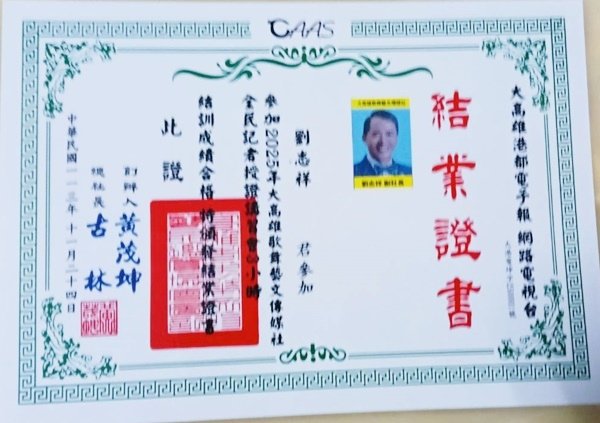 GAAS
大高雄港都電子報 網路電視台
結業證書
劉志祥 副社長
劉志祥 君參加
參加2025年大高雄歌舞藝文傳媒社
全民記者授證講習會3小時
結訓成績合格特頒發結業證書
此證
創辦人 黃茂坤
總社長 古林
中華民國一一三年十一月二十四日